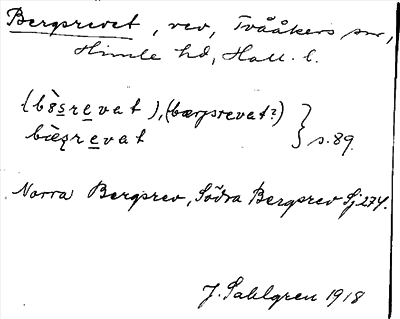 Bergsrevet, rev, Tvååkers sn,
Himle hd, Hall. l.
(bæ̀srevat), (bærsrevat?)
bæ̀srevat } s. 89.
Norra Bergsrev, Södra Bergsrev Sj. 274.
J. Sahlgren 1918